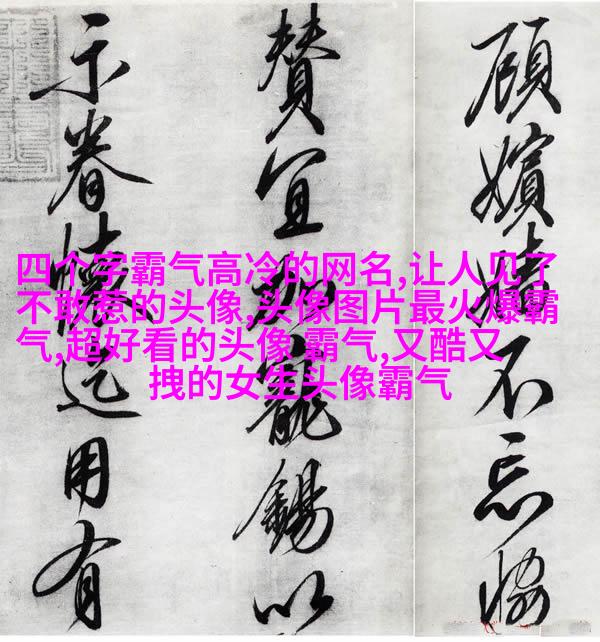 四个字霸气高冷的网名,让人见了
不敢惹的头像,头像图片最火爆霸
气,超好看的头像 霸气,又酷又
拽的女生头像霸气
顧嬪嬙不忘恊
賛宜加寵錫以
示眷懷迄用有